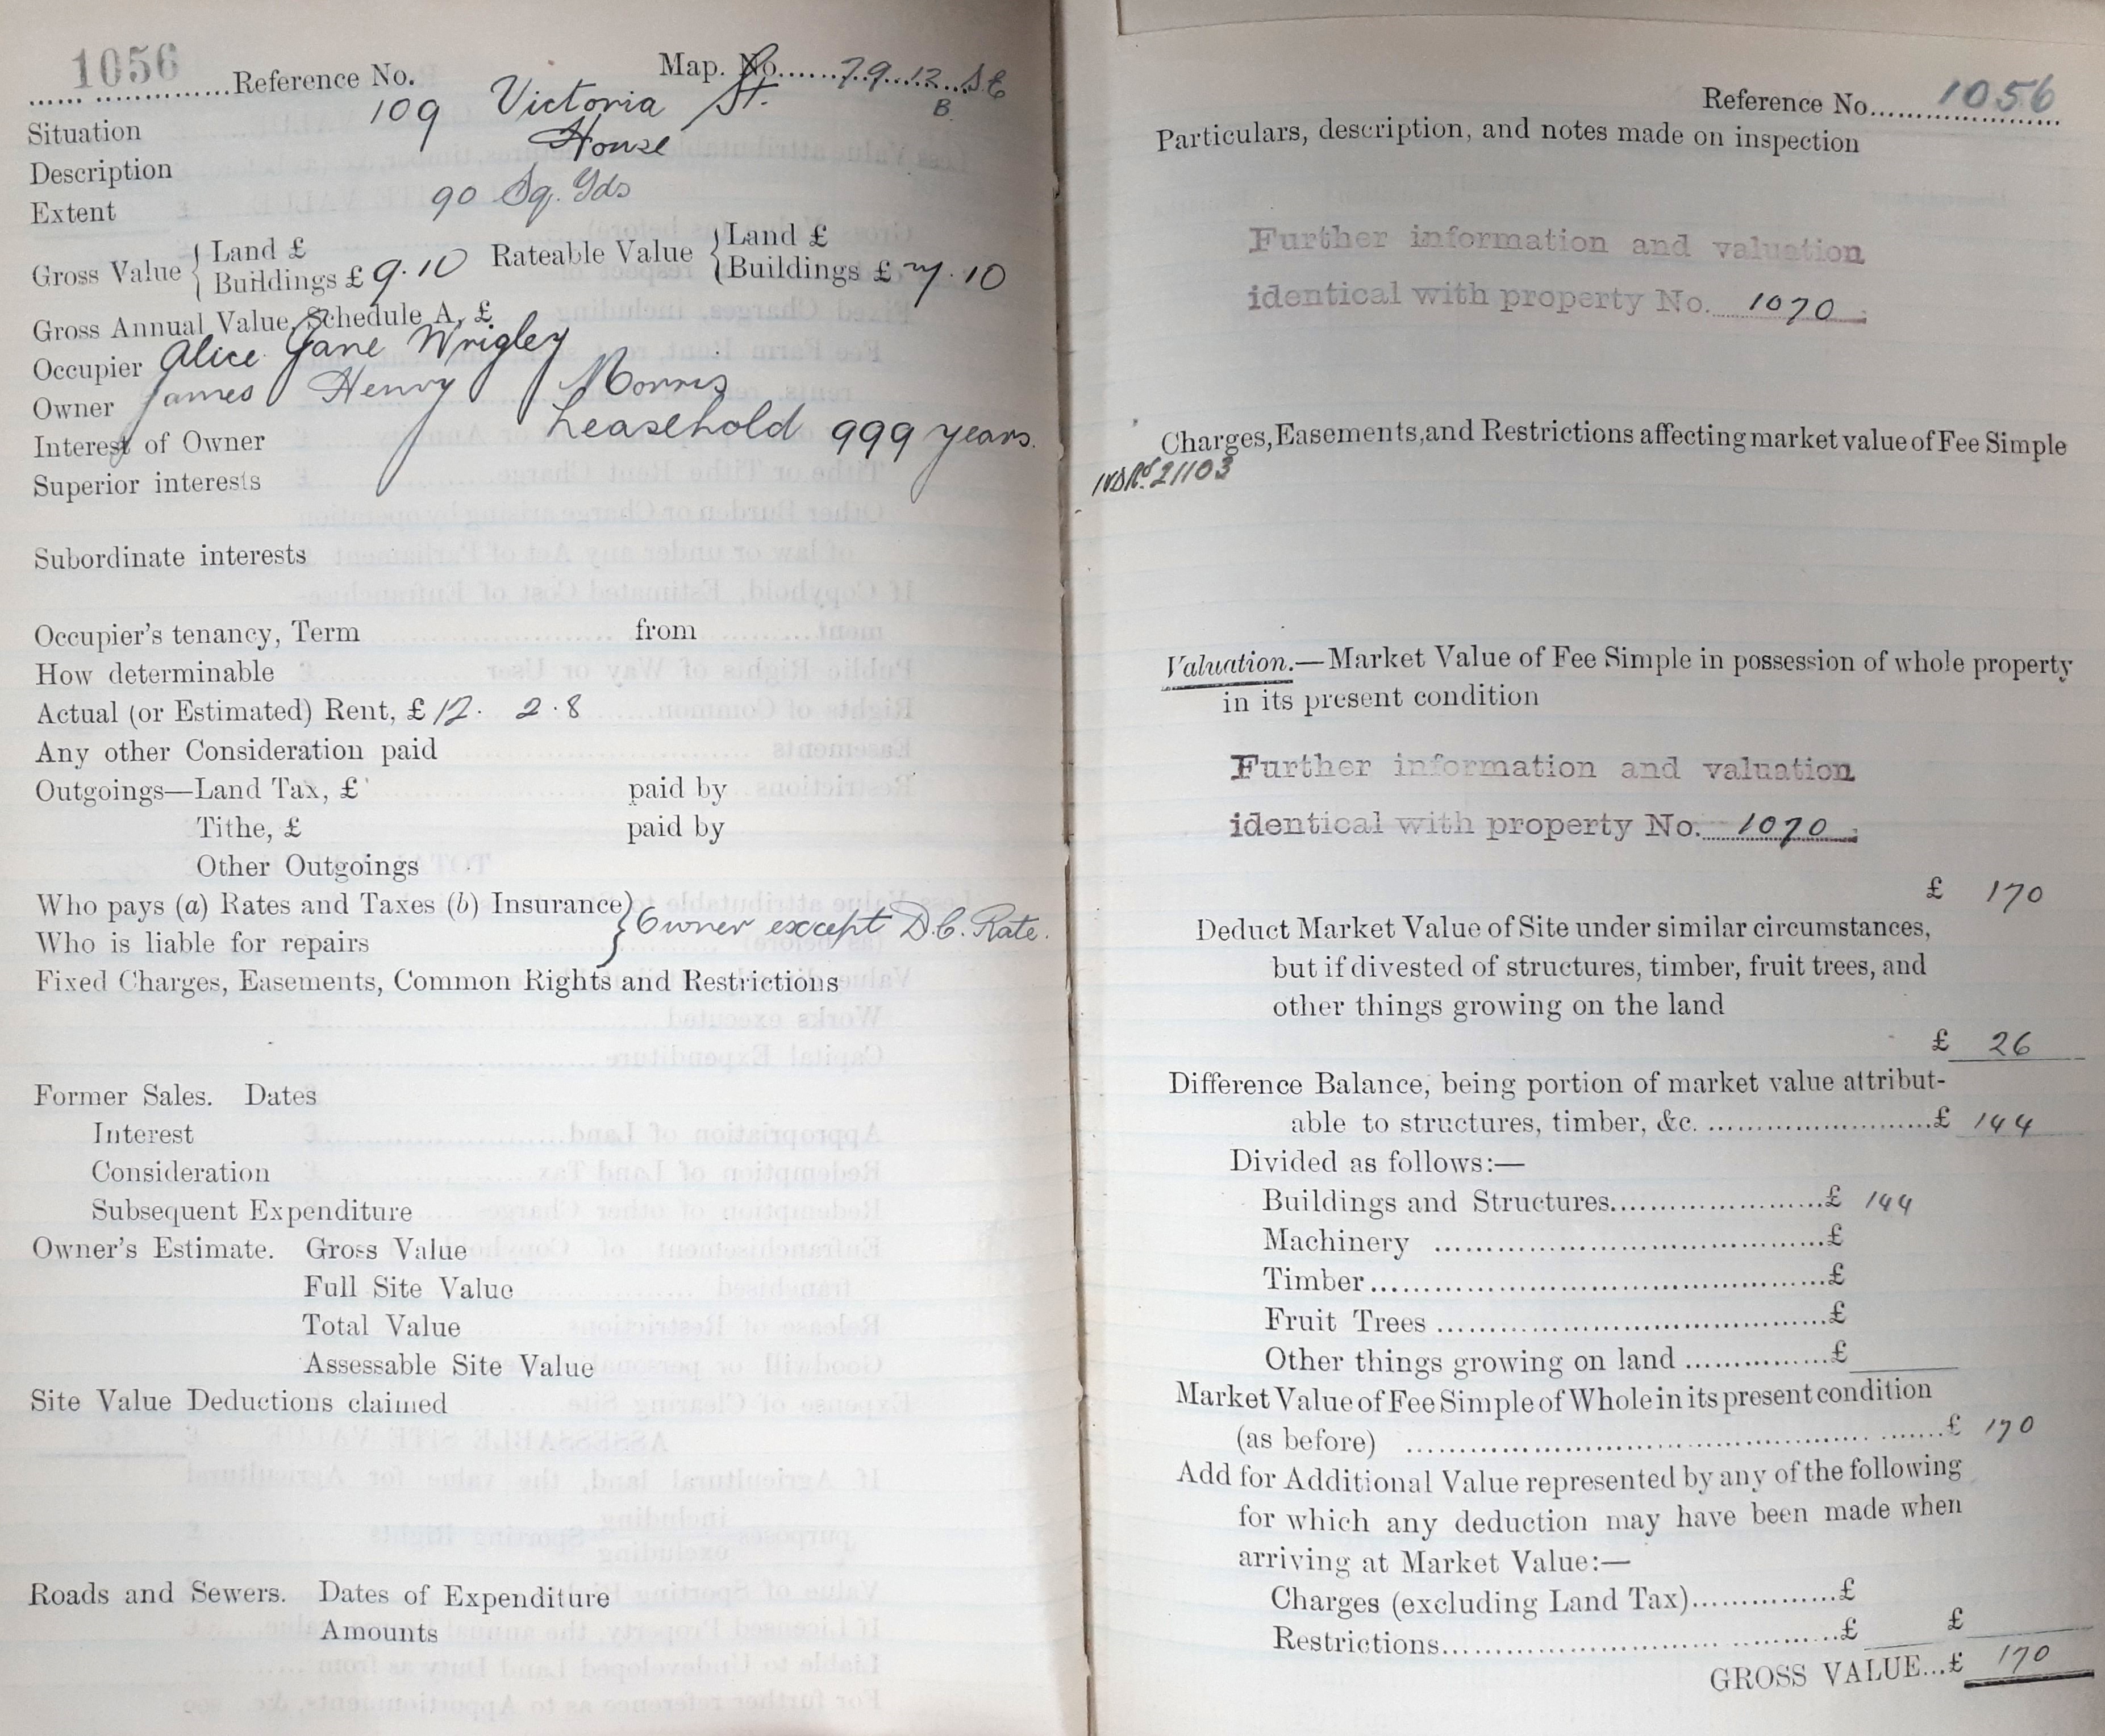 1056 Reference No. Map. No. 79.12.S.E
B.
Situation 109 Victoria St.
Description House
Extent 90 Sq. Yds
Gross Value { Land £
Buildings £ 9.10 Rateable Value { Land £
Buildings £ 7.10
Gross Annual Value, Schedule A, £
Occupier Alice Jane Wrigley
Owner James Henry Morris
Interest of Owner Leasehold 999 years.
Superior interests
Subordinate interests
Occupier's tenancy, Term from
How determinable
Actual (or Estimated) Rent, £ 12. 2.8
Any other Consideration paid
Outgoings—Land Tax, £ paid by
Tithe, £ paid by
Other Outgoings
Who pays (a) Rates and Taxes (b) Insurance
Who is liable for repairs } Owner except D.C. Rate.
Fixed Charges, Easements, Common Rights and Restrictions
Former Sales. Dates
Interest
Consideration
Subsequent Expenditure
Owner's Estimate. Gross Value
Full Site Value
Total Value
Assessable Site Value
Site Value Deductions claimed
Roads and Sewers. Dates of Expenditure
Amounts
Reference No. 1056
Particulars, description, and notes made on inspection
Further information and valuation
identical with property No. 1070.
Charges, Easements, and Restrictions affecting market value of Fee Simple
21103
Valuation.—Market Value of Fee Simple in possession of whole property
in its present condition
Further information and valuation
identical with property No. 1070.
£ 170
Deduct Market Value of Site under similar circumstances,
but if divested of structures, timber, fruit trees, and
other things growing on the land
£ 26
Difference Balance, being portion of market value attribut-
able to structures, timber, &c. £ 144
Divided as follows:—
Buildings and Structures £ 144
Machinery £
Timber £
Fruit Trees £
Other things growing on land £
Market Value of Fee Simple of Whole in its present condition
(as before) £ 170
Add for Additional Value represented by any of the following
for which any deduction may have been made when
arriving at Market Value:—
Charges (excluding Land Tax) £
Restrictions £ £
GROSS VALUE...£ 170